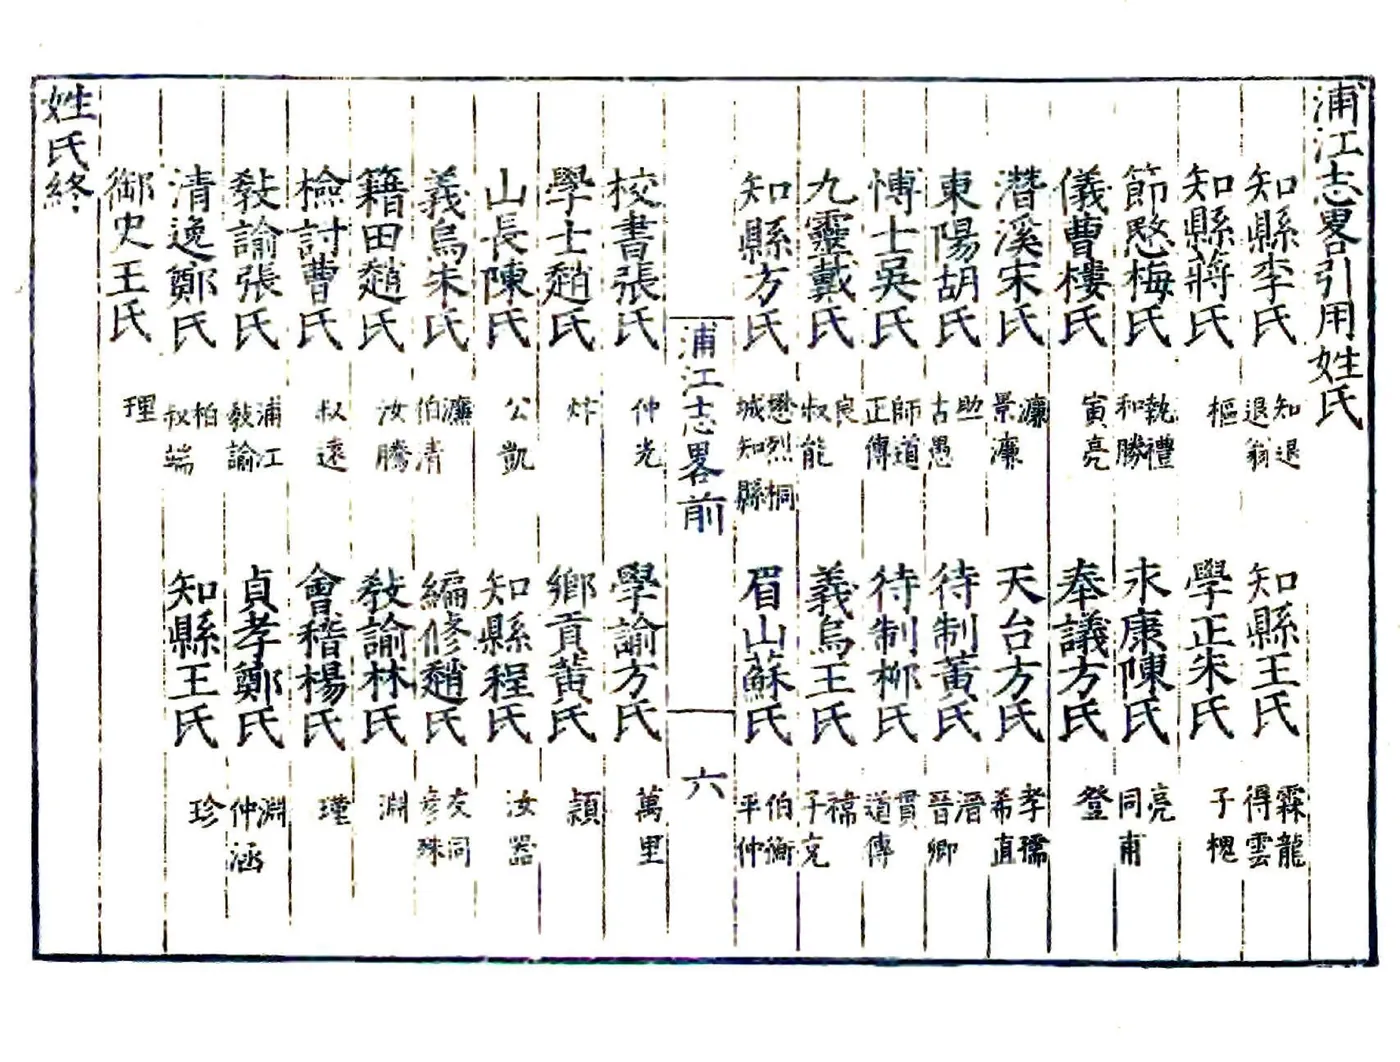 浦江志畧引用姓氏
知縣李氏 知退 退翁 知縣王氏 霖龍 得雲
知縣蔣氏 樞 學正朱氏 子槐
節愍梅氏 執禮 和勝 永康陳氏 亮 同甫
儀曹樓氏 寅亮 奉議方氏 登
潛溪宋氏 濂 景濂 天台方氏 孝孺 希直
東陽胡氏 助 古愚 待制黃氏 溍 晉卿
博士吳氏 師道 正傳 待制柳氏 貫 道傳
九靈戴氏 良 叔能 義烏王氏 禕 子充
知縣方氏 懋烈 桐城知縣 眉山蘇氏 伯衡 平仲
浦江志畧前 六
校書張氏 仲光 學諭方氏 萬里
學士趙氏 炸 鄉貢黃氏 潁
山長陳氏 公凱 知縣程氏 汝器
義烏朱氏 濂 伯清 編修趙氏 友同 彥殊
籍田趙氏 汝騰 敎諭林氏 淵
檢討曹氏 叔遠 會稽楊氏 瑾
敎諭張氏 浦江敎諭 貞孝鄭氏 淵 仲涵
清逸鄭氏 柏 叔端 知縣王氏 珍
御史王氏 理
姓氏終